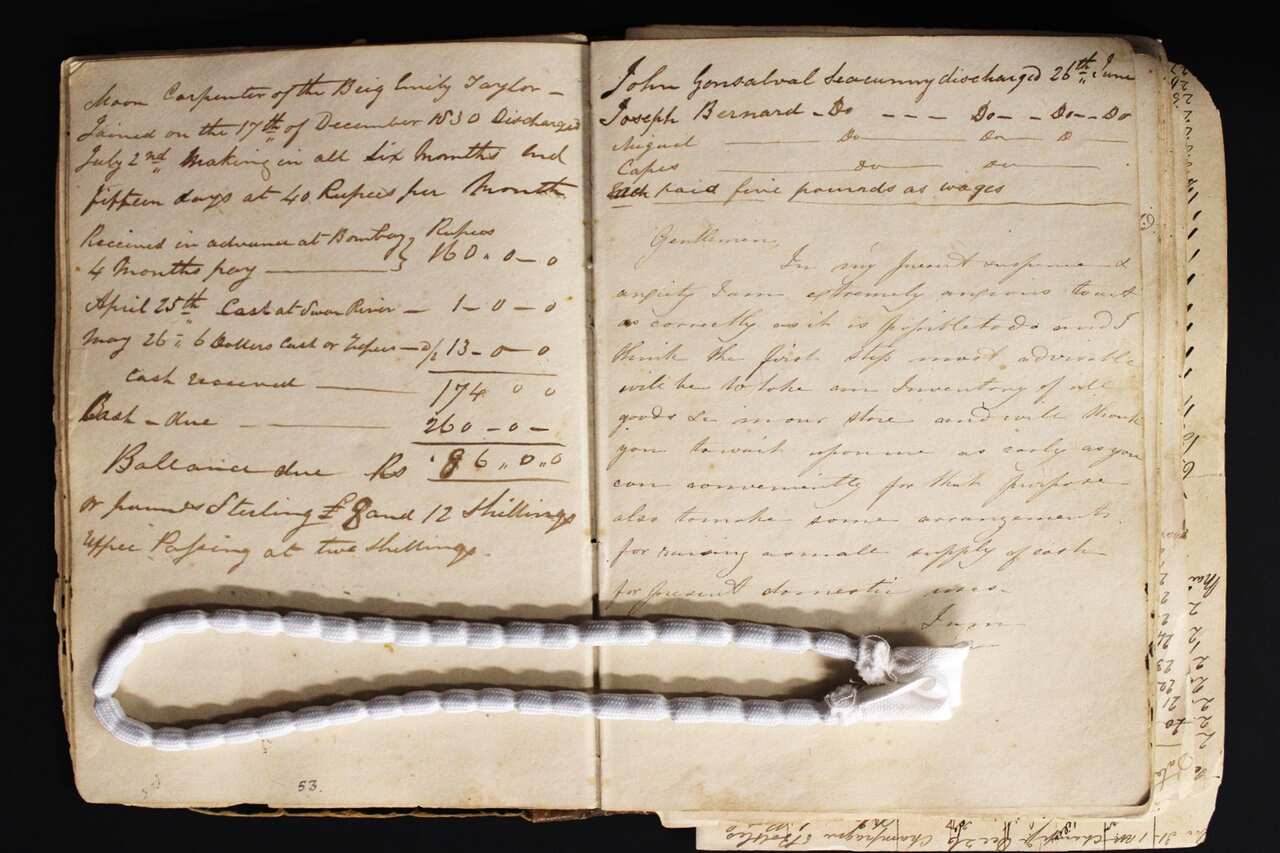 Moon Carpenter of the Brig Emily Taylor –
Joined on the 17th of December 1830 Discharged
July 2nd Making in all Six Months and
fifteen days at 40 Rupees per Month
Received in advance at Bombay } Rupees
4 Months pay — 160 „ 0 – 0
April 25th Cash at Swan River – 1 – 0 – 0
May 26th 6 Dollars Cash or 13 – 0 – 0
Cash received — 174 0 0
Cash – due — 260 – 0 –
Ballance due Rs 86 „ 0 „ 0
or pounds Sterling £8 and 12 Shillings
Passing at two Shillings.
53.
John Gonsalval Seacunny discharged 26th June
Joseph Bernard – Do – – – Do – – Do – – Do
Miguel — Do — Do — D —
Capes — do — do —
Each paid five pounds as wages
Gentlemen,
In my present suspense &
anxiety I am extremely anxious to act
as correctly as it is possible to do and I
think the first step most advisable
will be to take an Inventory of all
goods &c in our store and will thank
you to wait upon me as early as you
can conveniently for that purpose
also to make some arrangements
for raising a small supply of cash
for present domestic uses
I am